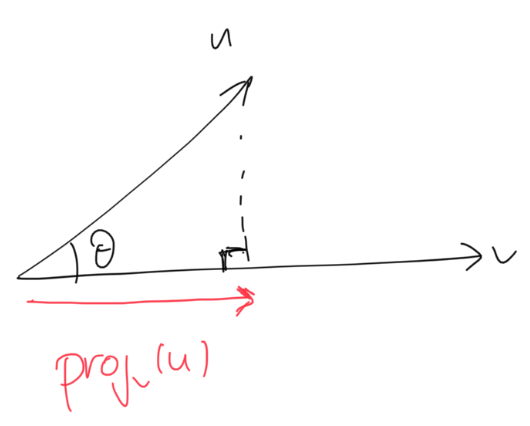 u
θ
v
proj_v(u)